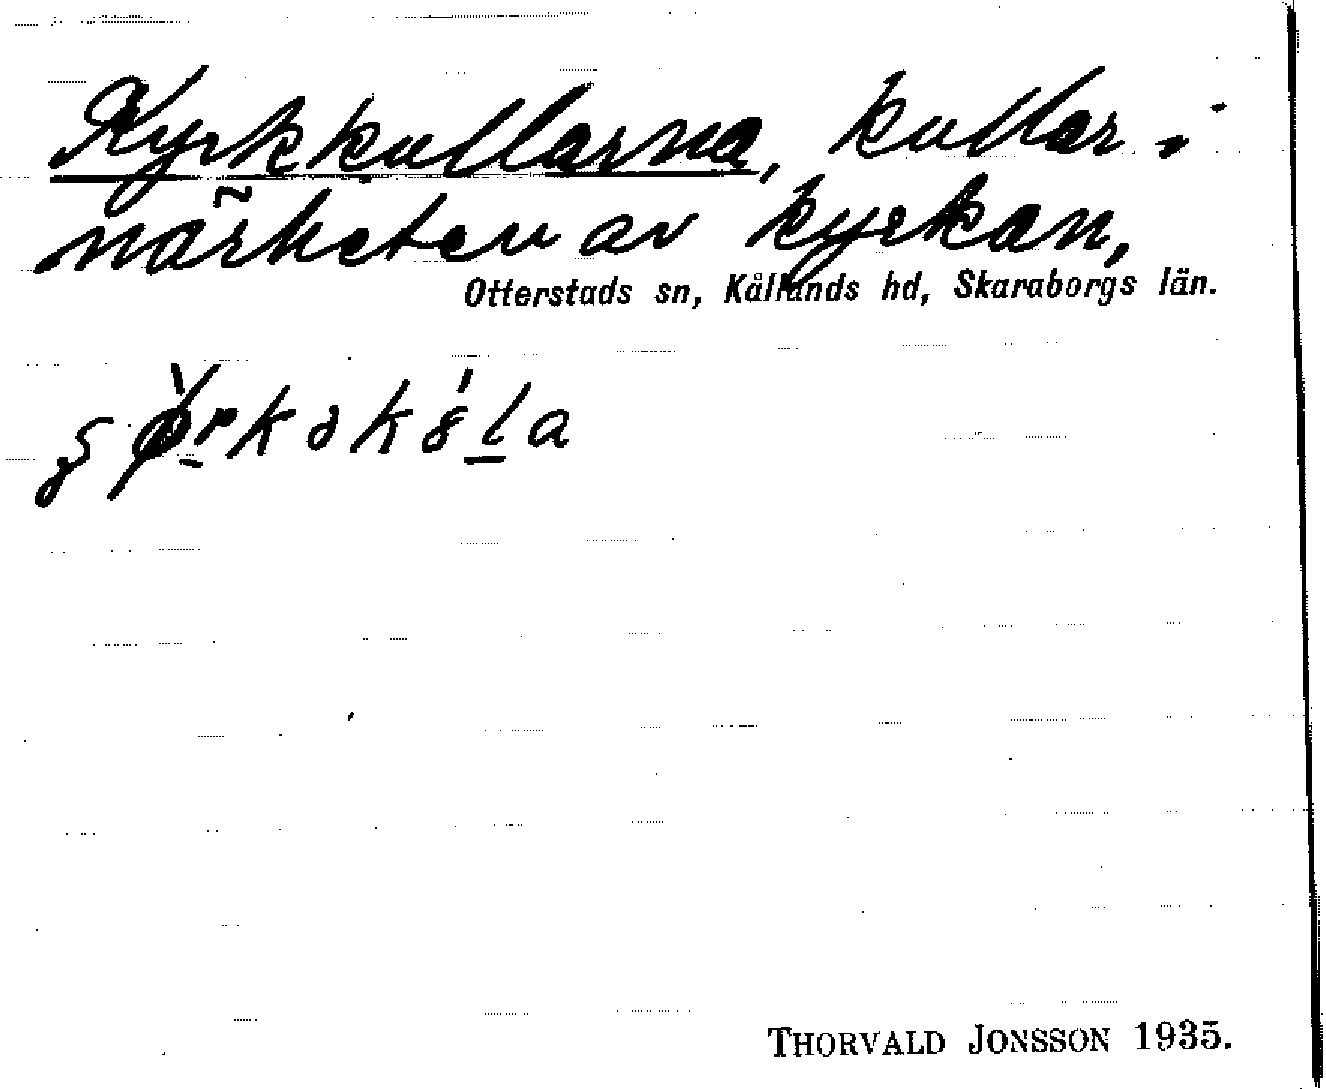 Kyrkkullarna, kullar i
närheten av kyrkan,
Otterstads sn, Kållands hd, Skaraborgs län.
THORVALD JONSSON 1935.